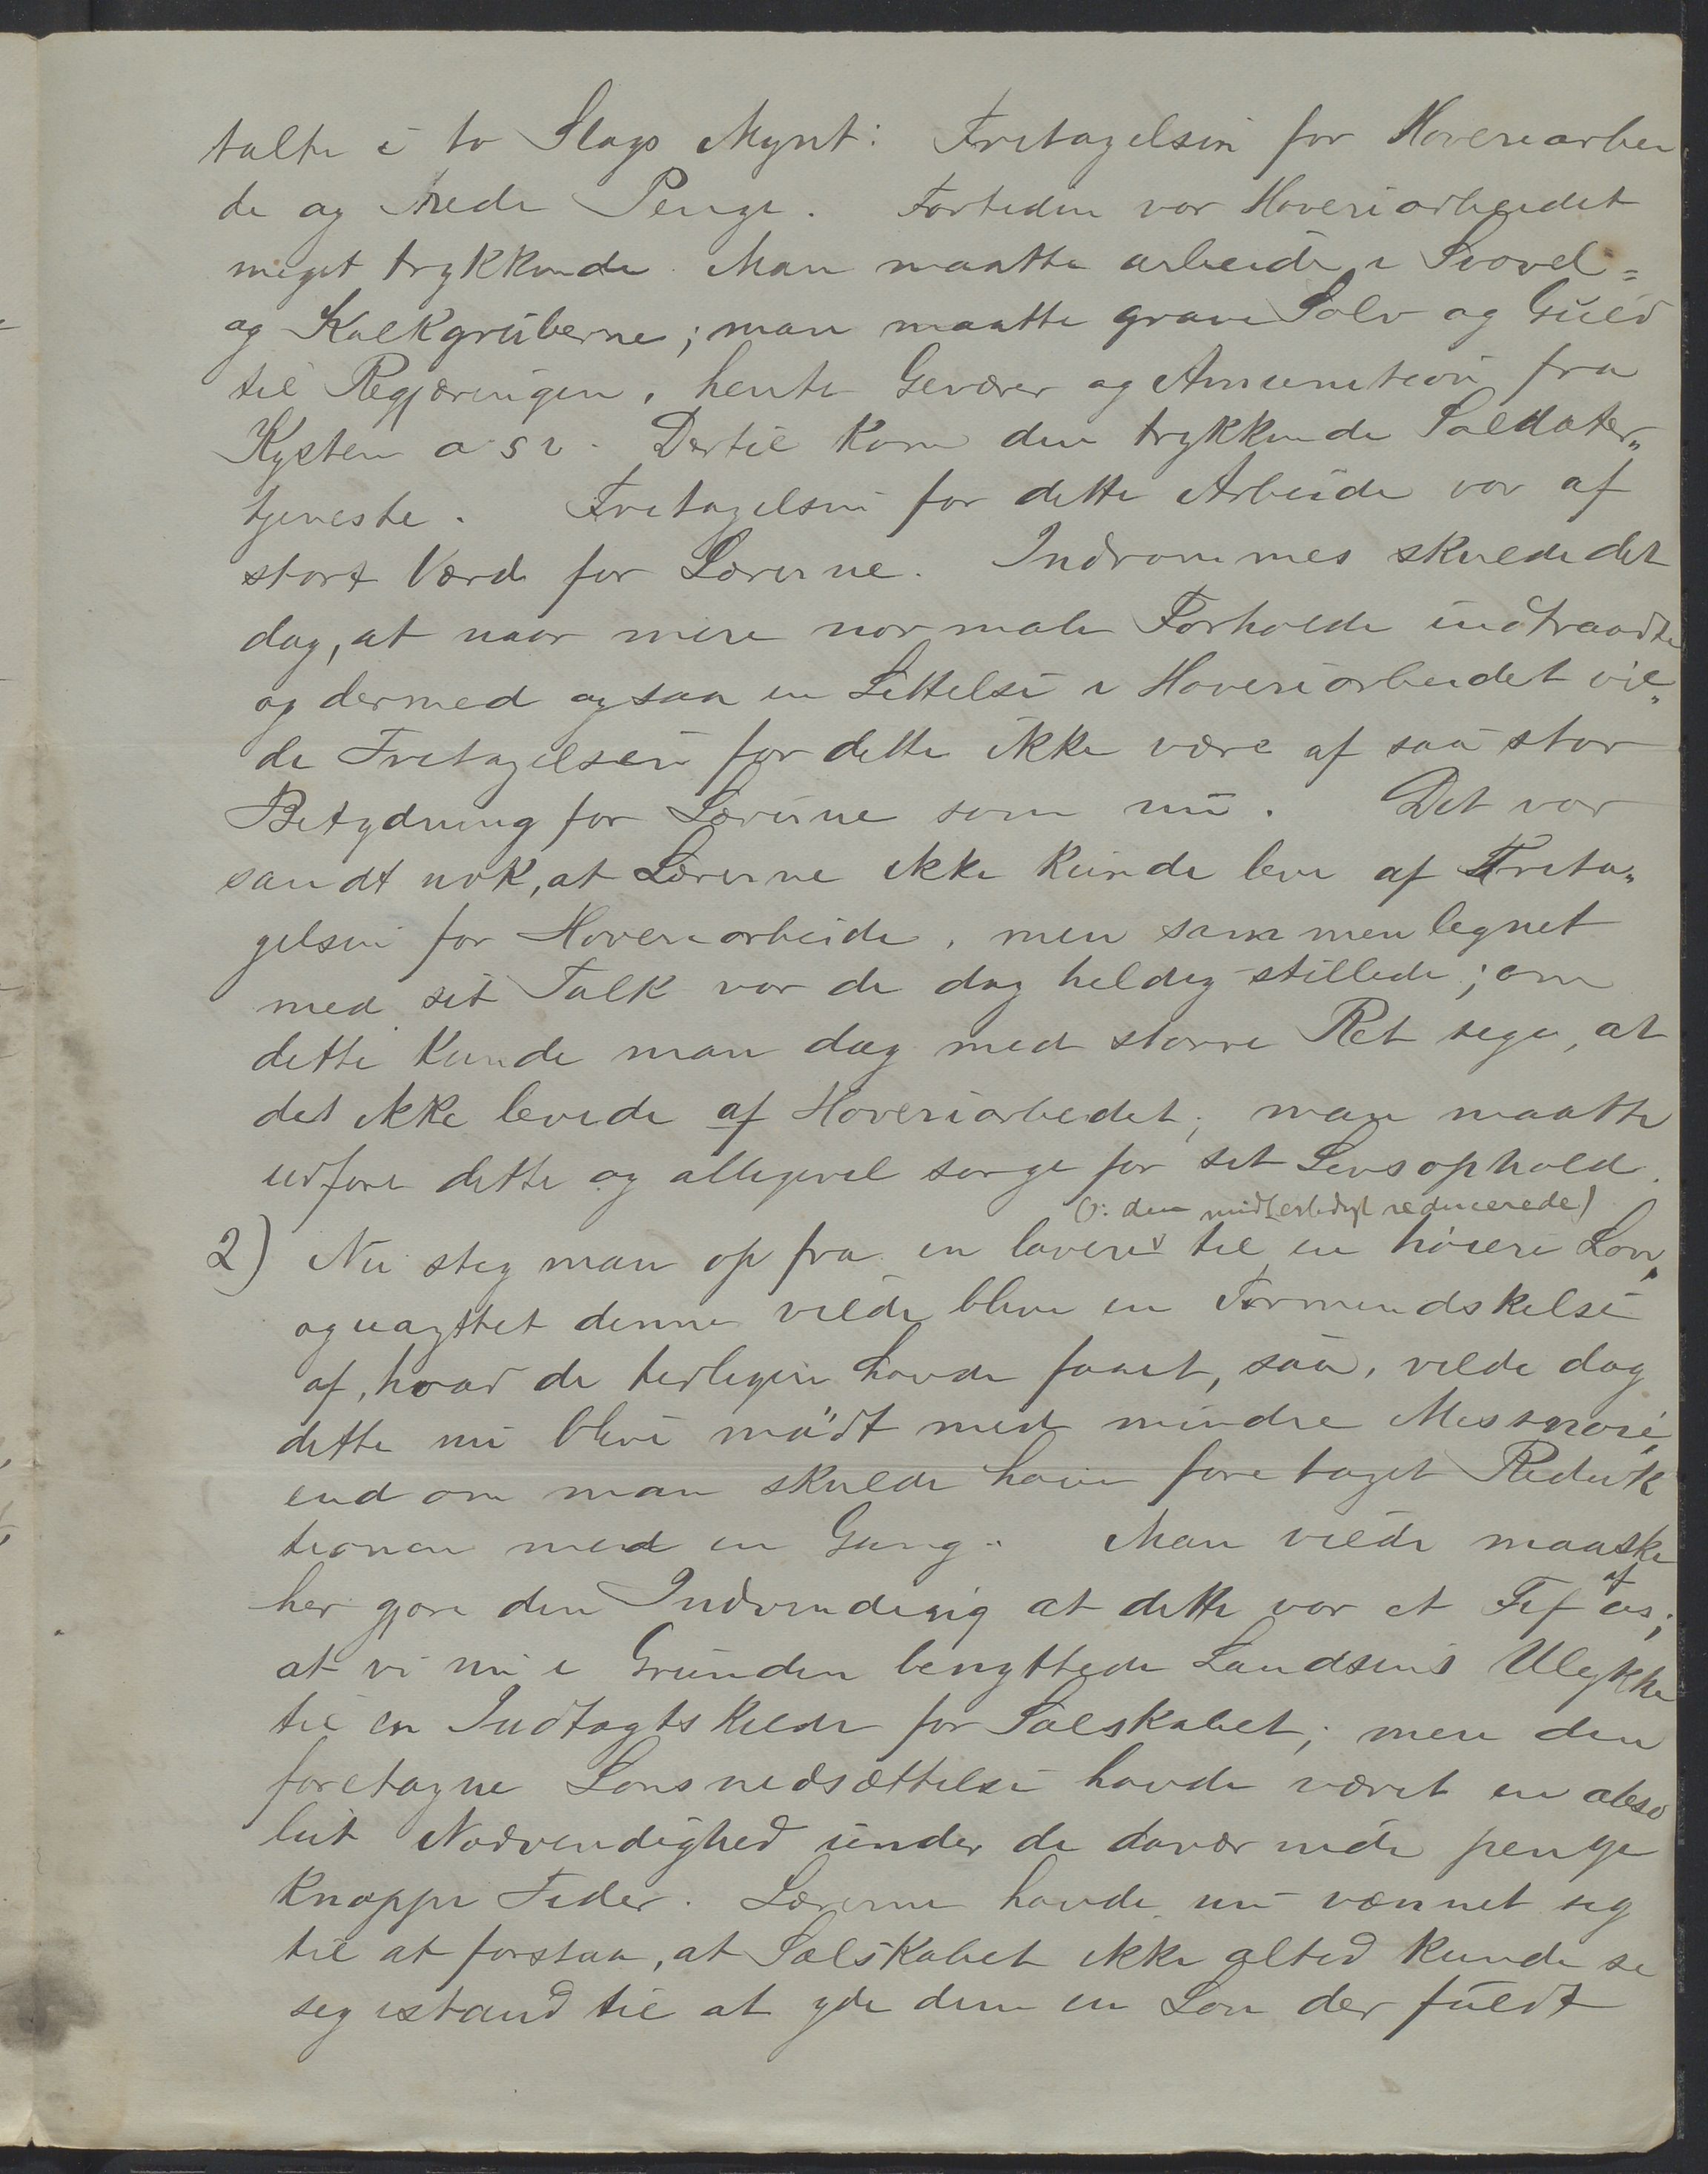 talte i to Slags Mynt: Fritagelsen for Hoveriarbei
de og rede Penge. Fortiden var Hoveriarbeidet
meget trykkende. Man maatte arbeide i Svovel=
og Kalkgruberne; man maatte grave Sølv og Guld
til Regjæringen, hente Geværer og Ammunition fra
Kysten o s v. Dertil kom den trykkende Soldater„
tjeneste. Fritagelsen for dette Arbeide var af
stort Værd for Lærerne. Indrømmes skulde det
dog, at naar mere normale Forholde indtraadte
og dermed ogsaa en Lettelse i Hoveriarbeidet vil„
de Fritagelsen for dette ikke være af saa stor
Betydning for Lærerne som nu. Det var
sandt nok, at Lærerne ikke kunde leve af Frita„
gelsen for Hoveriarbeide, men sammenlegnet
med sit Folk var de dog heldig stillede; om
dette kunde man dog med større Ret sige, at
det ikke levede af Hoveriarbeidet; man maatte
udføre dette og alligevel sørge for sit Livsophold.
(ɔ: den midlertidigt reducerede)
2) Nu steg man op fra en lavere til en høiere Løn,
og uagttet denne vilde blive en Formindskelse
af, hvad de tidligere havde faaet, saa, vilde dog
dette nu blive mødt med mindre Misnøie,
end om man skulde have foretaget Reduk
tionen med en Gang. Man vilde maaske
her gjøre den Indvending at dette var et Fif af os;
at vi nu i Grunden benyttede Landsens Ulykke
til en Indtægtskilde for Selskabet; men den
foretagne Lønsnedsættelse havde været en abso
lut Nødvendighed under de daværende penge
knappe Tider. Lærerne havde nu vænnet sig
til at forstaa, at Selskabet ikke altid kunde se
sig istand til at yde dem en Løn der fuldt